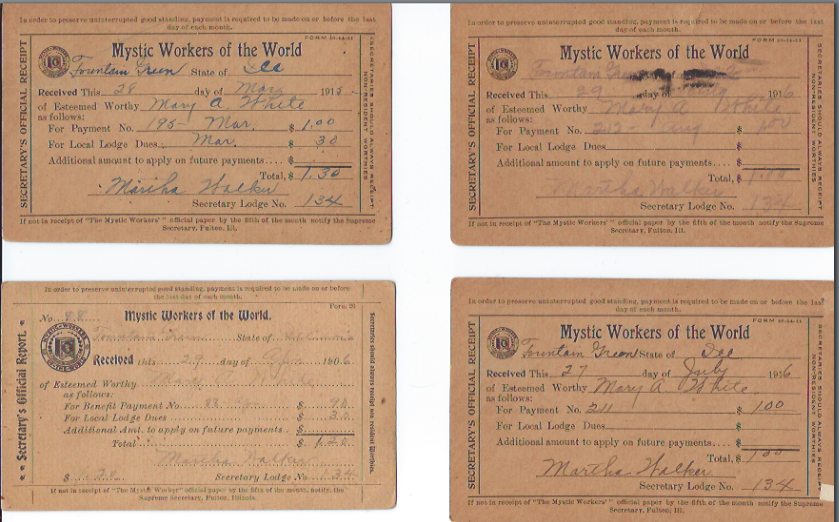 In order to preserve uninterrupted good standing, payment is required to be made on or before the last
day of each month.
FORM
SECRETARY'S OFFICIAL RECEIPT
Mystic Workers of the World
Fountain Green State of
Received This 28 day of Mar 1915
of Esteemed Worthy Mary A. White
as follows:
For Payment No. 195- Mar. $ 1.00
For Local Lodge Dues Mar. $ 30
Additional amount to apply on future payments.... $
Total, $ 1.30
Martha Walker
Secretary Lodge No. 134
SECRETARIES SHOULD ALWAYS RECEIPT
NON-RESIDENT WORTHIES
If not in receipt of "The Mystic Workers'" official paper by the fifth of the month notify the Supreme
Secretary, Fulton, Ill.
In order to preserve uninterrupted good standing, payment is required to be made on or before the last
day of each month.
FORM
SECRETARY'S OFFICIAL RECEIPT
Mystic Workers of the World
Fountain Green State of
Received This 29 day of Aug 1916
of Esteemed Worthy Mary A White
as follows:
For Payment No. 212 Aug $ 1.00
For Local Lodge Dues $
Additional amount to apply on future payments.... $
Total, $ 1.00
Martha Walker
Secretary Lodge No. 134
SECRETARIES SHOULD ALWAYS RECEIPT
NON-RESIDENT WORTHIES
If not in receipt of "The Mystic Workers'" official paper by the fifth of the month notify the Supreme
Secretary, Fulton, Ill.
In order to preserve uninterrupted good standing, payment is required to be made on or before
the last day of each month.
Form 20
Secretary's Official Report.
No. 88
Mystic Workers of the World.
Fountain Green State of
Received this 29 day of 1906
of Esteemed Worthy Mary
as follows:
For Benefit Payment No. 88 $ 90
For Local Lodge Dues $ 30
Additional Amt. to apply on future payments . $
Total $ 1.20
Martha Walker
$ 1.20 Secretary Lodge No. 134
Secretaries should always receipt non resident Worthies.
If not in receipt of "The Mystic Worker" official paper by the fifth of month, notify, the
Supreme Secretary, Fulton, Illinois.
In order to preserve uninterrupted good standing, payment is required to be made on or before the last
day of each month.
FORM
SECRETARY'S OFFICIAL RECEIPT
Mystic Workers of the World
Fountain Green State of
Received This 27 day of July 1916
of Esteemed Worthy Mary A White
as follows:
For Payment No. 211 $ 1.00
For Local Lodge Dues $
Additional amount to apply on future payments.... $
Total, $ 1.00
Martha Walker
Secretary Lodge No. 134
SECRETARIES SHOULD ALWAYS RECEIPT
NON-RESIDENT WORTHIES
If not in receipt of "The Mystic Workers'" official paper by the fifth of the month notify the Supreme
Secretary, Fulton, Ill.